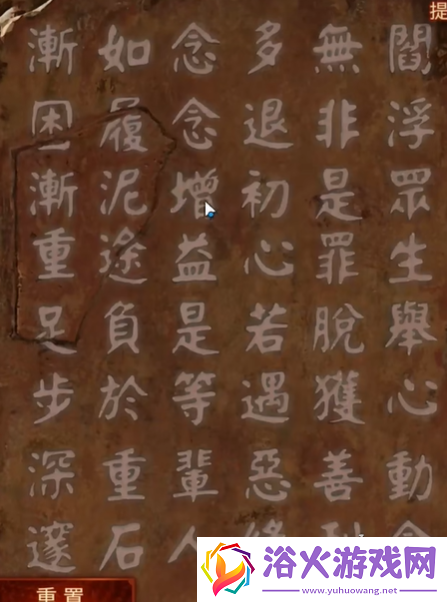 提
閻浮眾生舉心動
無非是罪脫獲善
多退初心若遇惡
念念增益是等輩人
如履泥途負於重石
漸困漸重足步深邃
重置
浴火游戏网
www.yuhuowang.net